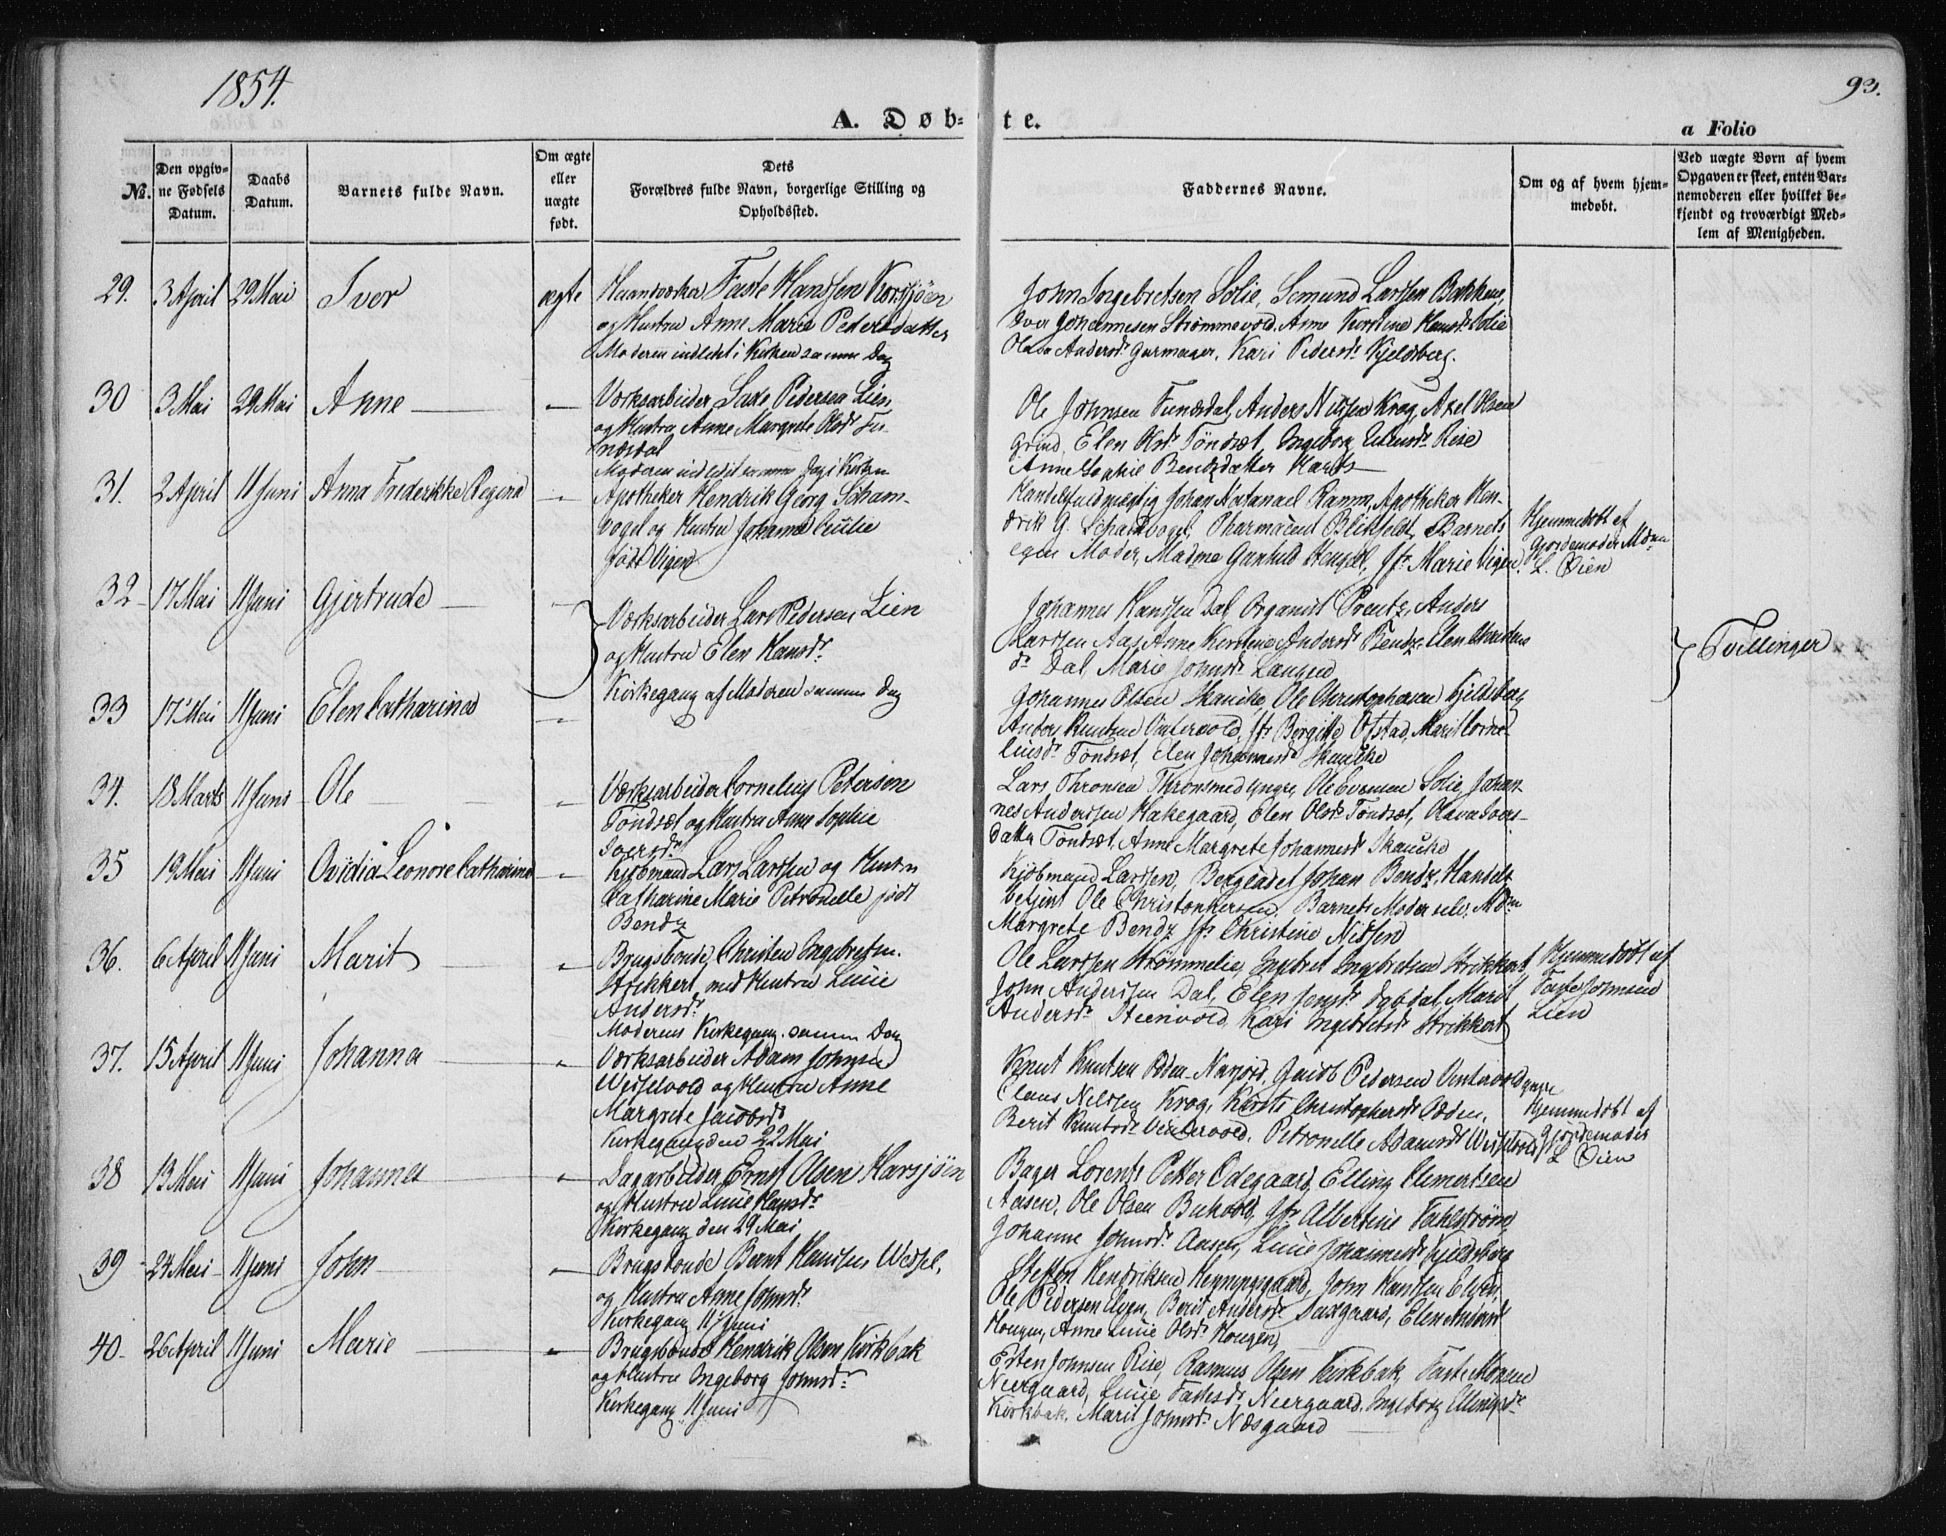 1854.
93.
A. Døb-
te.
a Folio
No.
Den opgiv-
ne Fødsels
Datum.
Daabs
Datum.
Barnets fulde Navn.
Om ægte
eller
uægte
født.
Dets
Forældres fulde Navn, borgerlige Stilling og
Opholdssted.
Faddernes Navne.
Om og af hvem hjem-
medøbt.
Ved uægte Børn af hvem
Opgaven er skeet, enten Bar-
nemoderen eller hvilket be-
kjendt og troværdigt Med-
lem af Menigheden.
29. 3 April 29 Mai Iver ægte
Haandværker Faste Hanssen Korssjøen
og Hustru Anne Marie Pedersdatter
Moderen indledt i Kirken samme Dag
John Ingebretsen Solie, Semund Larssen Bakken,
Iver Johannesen Strømmevold, Anne Kirstine Hansdr Solie
Olava Andersdr Gurmager, Kari Pedersdr Kjeldsberg.
30 3 Mai 29 Mai Anne —
Værksarbeider Lars Pedersen Lien
og Hustru Anne Margrete Olsdr Fu-
ndsdal
Moderen indledt samme Dag i Kirken
Ole Johnsen Fundsdal, Anders Nilssen Krog, Axel Olsen
Grind, Elen Olsdr Tøndsæt, Ingeborg Rise
Anne Sophie Bendzdatter
31. 2 April 11 Juni Anna Frederikke Regina "
Apotheker Hendrik Georg Scham-
vogel og Hustru Johanne Cecilie
født Vigen
Handelsfuldmægtig Johan Natanael Ramm, Apotheker Hen-
drik G. Schamvogel, Pharmaceut Blikfeldt, Barnets
egen Moder, Madme Gunhild Hengsel, Jfr Marie Vigen.
Hjemmedøbt af
Gjordemoder Mdm
L. Øien
32 17 Mai 11 Juni Gjertrude
Værksarbeider Lars Pedersen Lien
og Hustru Elen Hansdr.
Kirkegang af Moderen samme Dag
Johannes Hanssen Dal, Organist Prentz, Anders
Larssen Aas, Anne Kirstine Andersdr Bendz, Elen Christens
dr Dal, Marie Johnsdr Langen
Tvillinger
33 17 Mai 11 Juni Elen Catharina "
Johannes Olsen Skancke, Ole Christophersen Kjeldsberg
Anders Knutsen Vintervold, Jfr Birgitte Ofstad, Marit Corne-
liusdr Tøndsæt, Elen Johannesdr Skancke
34. 18 Marts 11 Juni Ole "
Værksarbeider Cornelius Petersen
Tøndsæt og Hustru Anne Sophie
Iversdr
Lars Thronsen Thronsmed yngre, Ole Evensen Solie, Johan-
nes Anderssen Hakegaard, Elen Olsdr Tøndsæt, Olava Ivers-
datter Tøndsæt, Anne Margrete Johannesdr Skancke
35 19 Mai 11 Juni Ovidia Leonore Catharina "
Kjøbmand Lars Larssen og Hustru
Catharine Marie Petronelle født
Bendz
Kjøbmand Larssen, Bergkadet Johan Bendz, Handels-
betjent Ole Christophersen, Barnets Moder selv, Mdm
Margrete Bendz, Jfr Christine Nilsen
36. 6 April 11 Juni Marit "
Brugsbonde Christen Ingebretsen
Strikkert med Hustru Lucie
Andersdr.
Moderens Kirkegang samme Dag
Ole Larssen Strømmelie, Ingebret Ingebretsen Strikkert,
John Anderssen Dal, Elen Jensdr Dal, Marit
Andersdr Steenvold, Kari Ingebretsdr Strikkert
Hjemmedøbt af
Faste Johnsen
Lien
37. 15 April 11 Juni Johanna "
Værksarbeider Adam Johnsen
Weisselvold og Hustru Anne
Margrete Jacobsdr
Kirkegang den 22 Mai
Knut Knutsen Odden Narjord, Jacob Pedersen Vintervold yngre
Claus Nilssen Krog, Kirsti Christophersdr Odden,
Berit Knutsdr Vintervold, Petronelle Adamsdr Weisselvold
Hjemmedøbt af
Gjordemoder
L. Øien
38 13 Mai 11 Juni Johannes "
Dagarbeider Ernst Olsen Harsjøen
og Hustru Lucie Hansdr.
Kirkegang den 29 Mai
Bager Lorents Petter Ødegaard, Elling Clemetsen
Aasen, Ole Olsen Buhold, Jfr Albertine Fahlstrøm
Johanne Johnsdr Aasen, Lucie Johannesdr Kjeldsberg
39 24 Mai 11 Juni John "
Brugsbonde Bent Hanssen Wessel,
og Hustru Anne Johnsdr.
Kirkegang 11 Juni
Steffen Hendriksen Henningsgaard, John Hanssen Elven,
Ole Pedersen Elven, Berit Andersdr Saxgaard, Elen Andersdr
Hougen, Anne Lucie Olsdr Hougen,
40 26 April 11 Juni Marie "
Brugsbonde Hendrik Olsen Kirkbak
og Hustru Ingeborg Johnsdr.
Kirkegang 11 Juni
Esten Johnsen Rise, Rasmus Olsen Kirkbak, Faste Monsen
Neergaard, Lucie Fastesdr Neergaard, Ingeborg Ellingsdr
Kirkbak, Marit Johnsdr Næsgaard